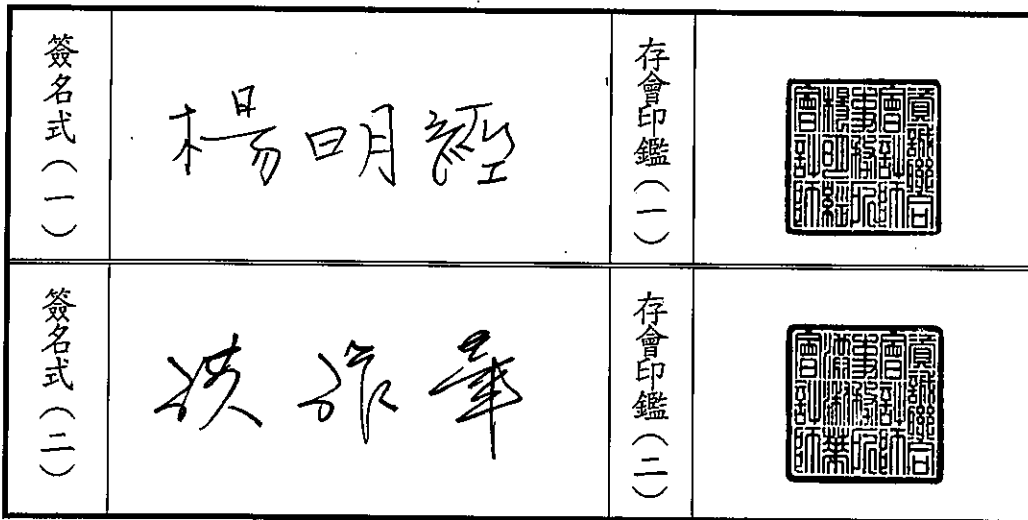 簽名式（一）
楊明經
存會印鑑（一）
資誠聯合
會計師
事務所
楊明經
會計師
簽名式（二）
洪淑華
存會印鑑（二）
資誠聯合
會計師
事務所
洪淑華
會計師